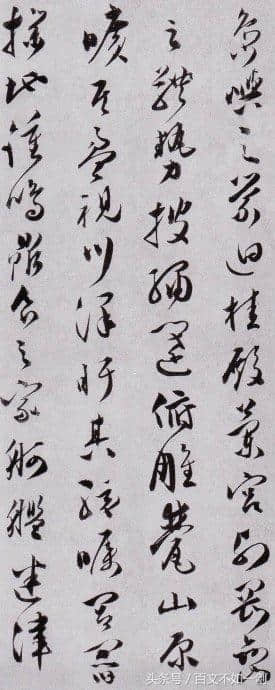 島嶼之縈迴桂殿蘭宮列岡巒
之體勢披繡闥俯雕甍山原
曠其盈視川澤盱其駭矚閭閻
撲地鐘鳴鼎食之家舸艦迷津
头条号 / 百文不如一